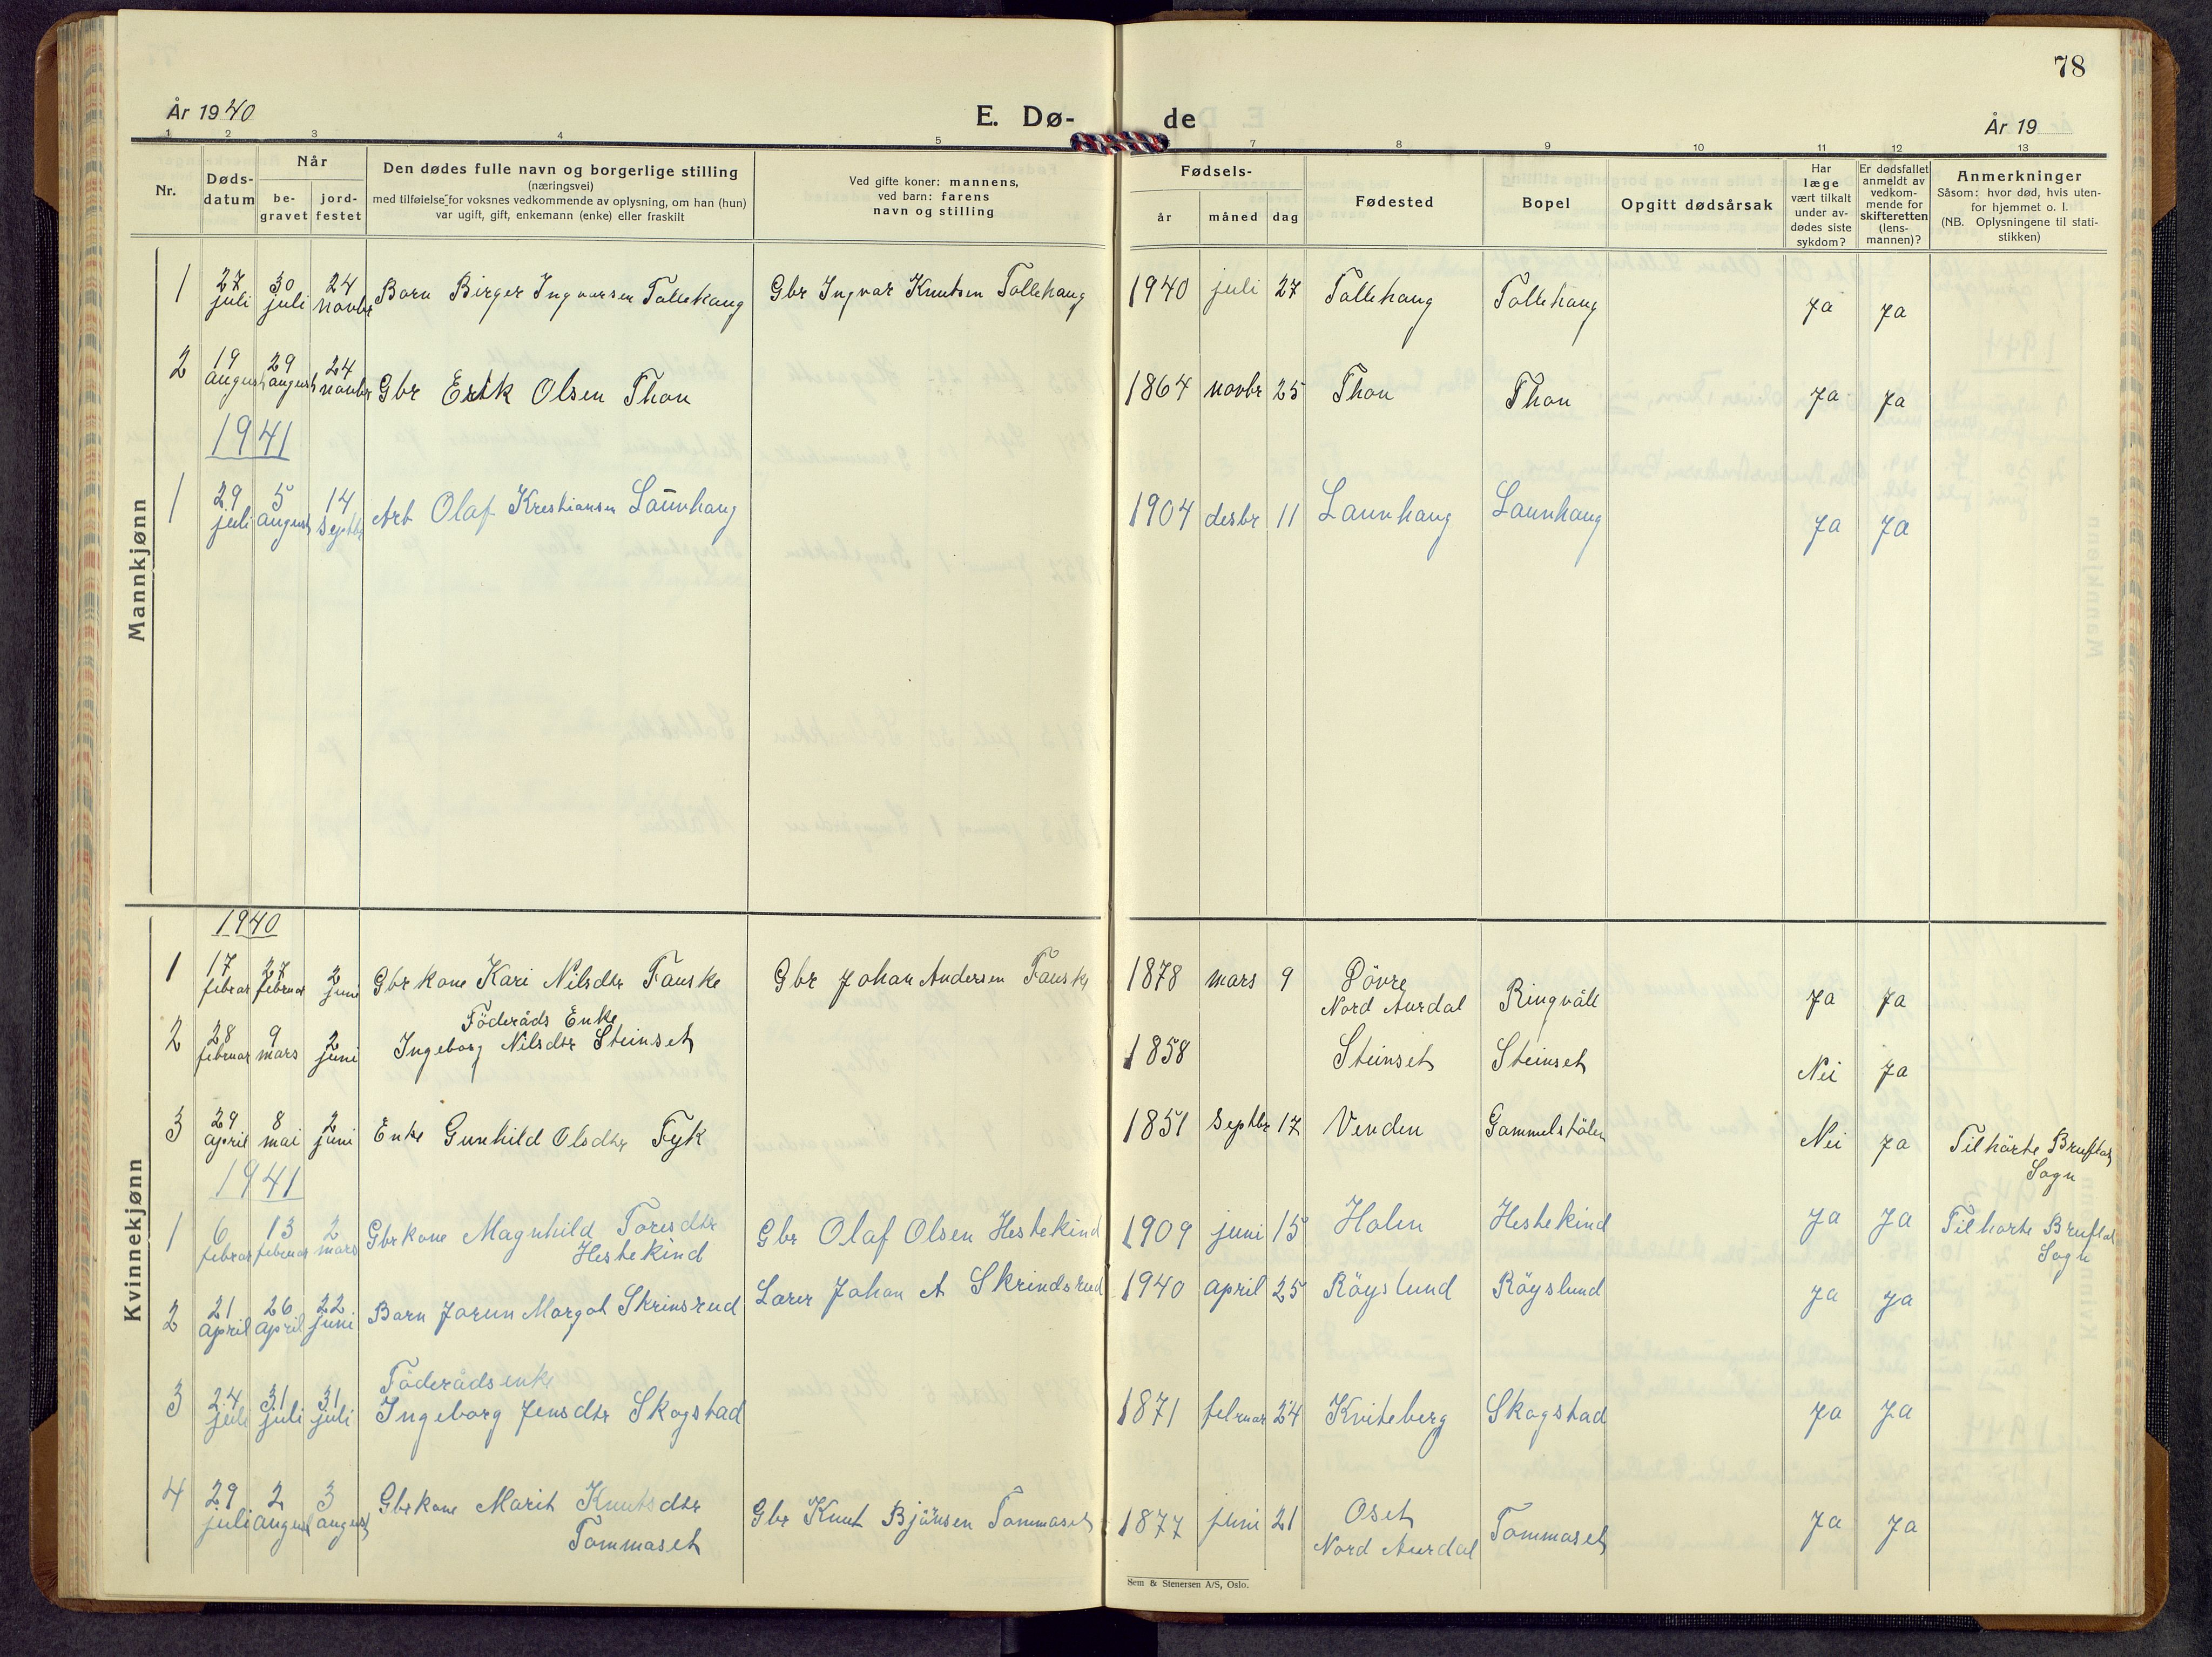 78
År 1940
E. Dø-
de
År 19
1 2 3 4 5 7 8 9 10 11 12 13
Nr.
Døds-
datum
Når
be-
gravet
jord-
festet
Den dødes fulle navn og borgerlige stilling
(næringsvei)
med tilføielse for voksnes vedkommende av oplysning, om han (hun)
var ugift, gift, enkemann (enke) eller fraskilt
Ved gifte koner: mannens,
ved barn: farens
navn og stilling
Fødsels-
år
måned
dag
Fødested
Bopel
Opgitt dødsårsak
Har
læge
vært tilkalt
under av-
dødes siste
sykdom?
Er dødsfallet
anmeldt av
vedkom-
mende for
skifteretten
(lens-
mannen)?
Anmerkninger
Såsom: hvor død, hvis uten-
for hjemmet o. l.
(NB. Oplysningene til stati-
stikken)
Mannkjønn
1 27 juli 30 juli 24 novbr Barn Birger Ingvarsen Tollehaug Gbr Ingvar Knutsen Tollehaug 1940 juli 27 Tollehaug Tollehaug Ja Ja
2 19 august 29 august 24 novbr Gbr Erik Olsen Thon 1864 novbr 25 Thon Thon Ja Ja
1941
1 29 juli 5 august 14 septbr Arb Olaf Krestiansen Launhaug 1904 desbr 11 Launhaug Launhaug Ja Ja
Kvinnekjønn
1940
1 17 februar 27 februar 2 juni Gbr kone Kari Nilsdtr Fauske Gbr Johan Andersen Fauske 1878 mars 9 Dövre
Nord Aurdal Ringväll Ja Ja
2 28 februar 9 mars 2 juni Föderåds Enke
Ingeborg Nilsdtr Steinset 1858 Steinset Steinset Nei Ja
3 29 april 8 mai 2 juni Enke Gunhild Olsdtr Fyk 1851 septbr 17 Venden Gammelstölen Nei Ja Tilhörte Bruflat
Sogn
1941
1 6 februar 13 februar 2 mars Gbrkone Magnhild Toresdtr
Hestekind Gbr Olaf Olsen Hestekind 1909 juni 15 Holen Hestekind Ja Ja Tilhörte Bruflat
Sogn
2 21 april 26 april 22 juni Barn Jorun Margot Skrinsrud Lærer Johan A Skrindsrud 1940 april 25 Röyslund Röyslund Ja Ja
3 24 juli 31 juli 31 juli Föderådsenke
Ingeborg Jensdtr Skogstad 1871 februar 24 Kviteberg Skogstad Ja Ja
4 29 juli 2 august 3 august Gbrkone Marit Knutsdtr
Tommaset Gbr Knut Björnsen Tommaset 1877 juni 21 Oset
Nord Aurdal Tommaset Ja Ja
Sem & Stenersen A/S, Oslo.